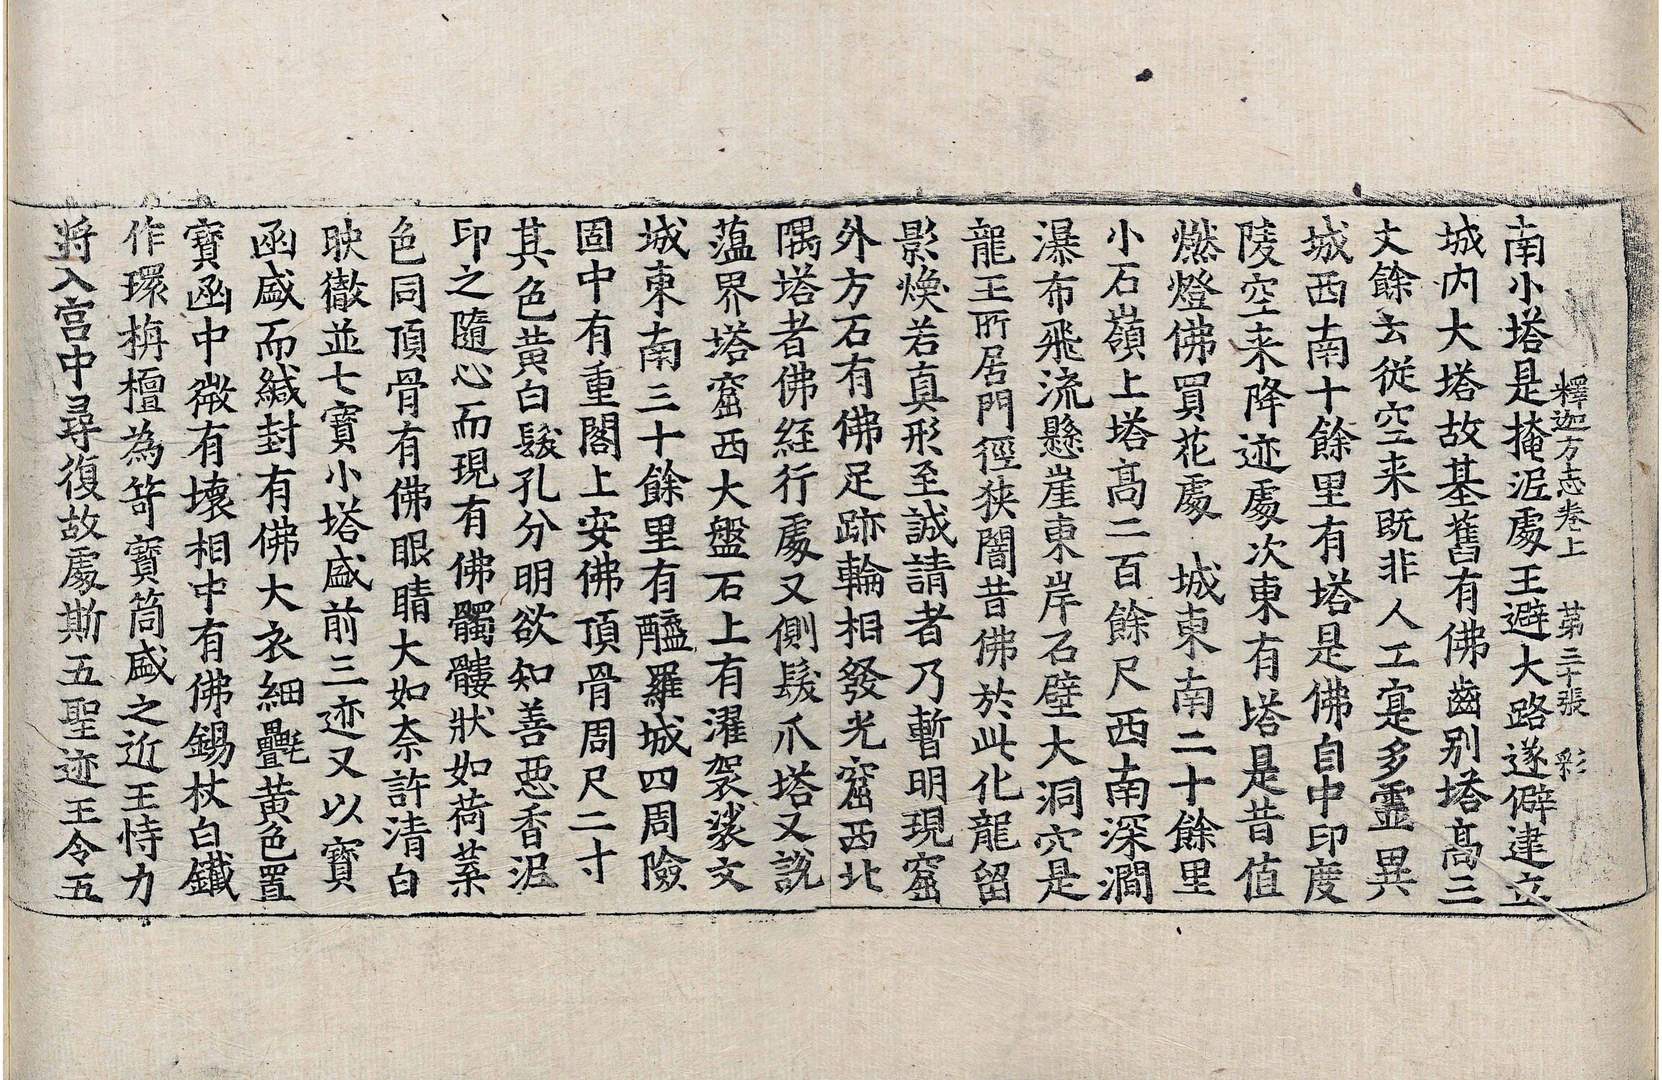 釋迦方志卷上　第三十張　彡
南小塔是掩泥處王避大路遂僻建立
城内大塔故基舊有佛齒别塔髙三
丈餘云從空来既非人工寔多靈異
城西南十餘里有塔是佛自中印度
陵空来降迹處次東有塔是昔值
燃燈佛買花處　城東南二十餘里
小石嶺上塔髙二百餘尺西南深澗
瀑布飛流懸崖東岸石壁大洞穴是
龍王所居門徑狹闇昔佛於此化龍留
影煥若真形至誠請者乃暫明現窟
外方石有佛足跡輪相發光窟西北
隅塔者佛經行處又側髮爪塔又說
薀界塔窟西大盤石上有濯袈裟文
城東南三十餘里有醯羅城四周險
固中有重閣上安佛頂骨周尺二寸
其色黄白髮孔分明欲知善惡香泥
印之隨心而現有佛髑髏狀如荷葉
色同頂骨有佛眼睛大如柰許清白
映徹並七寶小塔盛前三迹又以寶
函盛而緘封有佛大衣細㲲黄色置
寶函中微有壞相中有佛錫杖白鐵
作環栴檀為笴寶筒盛之近王恃力
將入宫中尋復故處斯五聖迹王令五